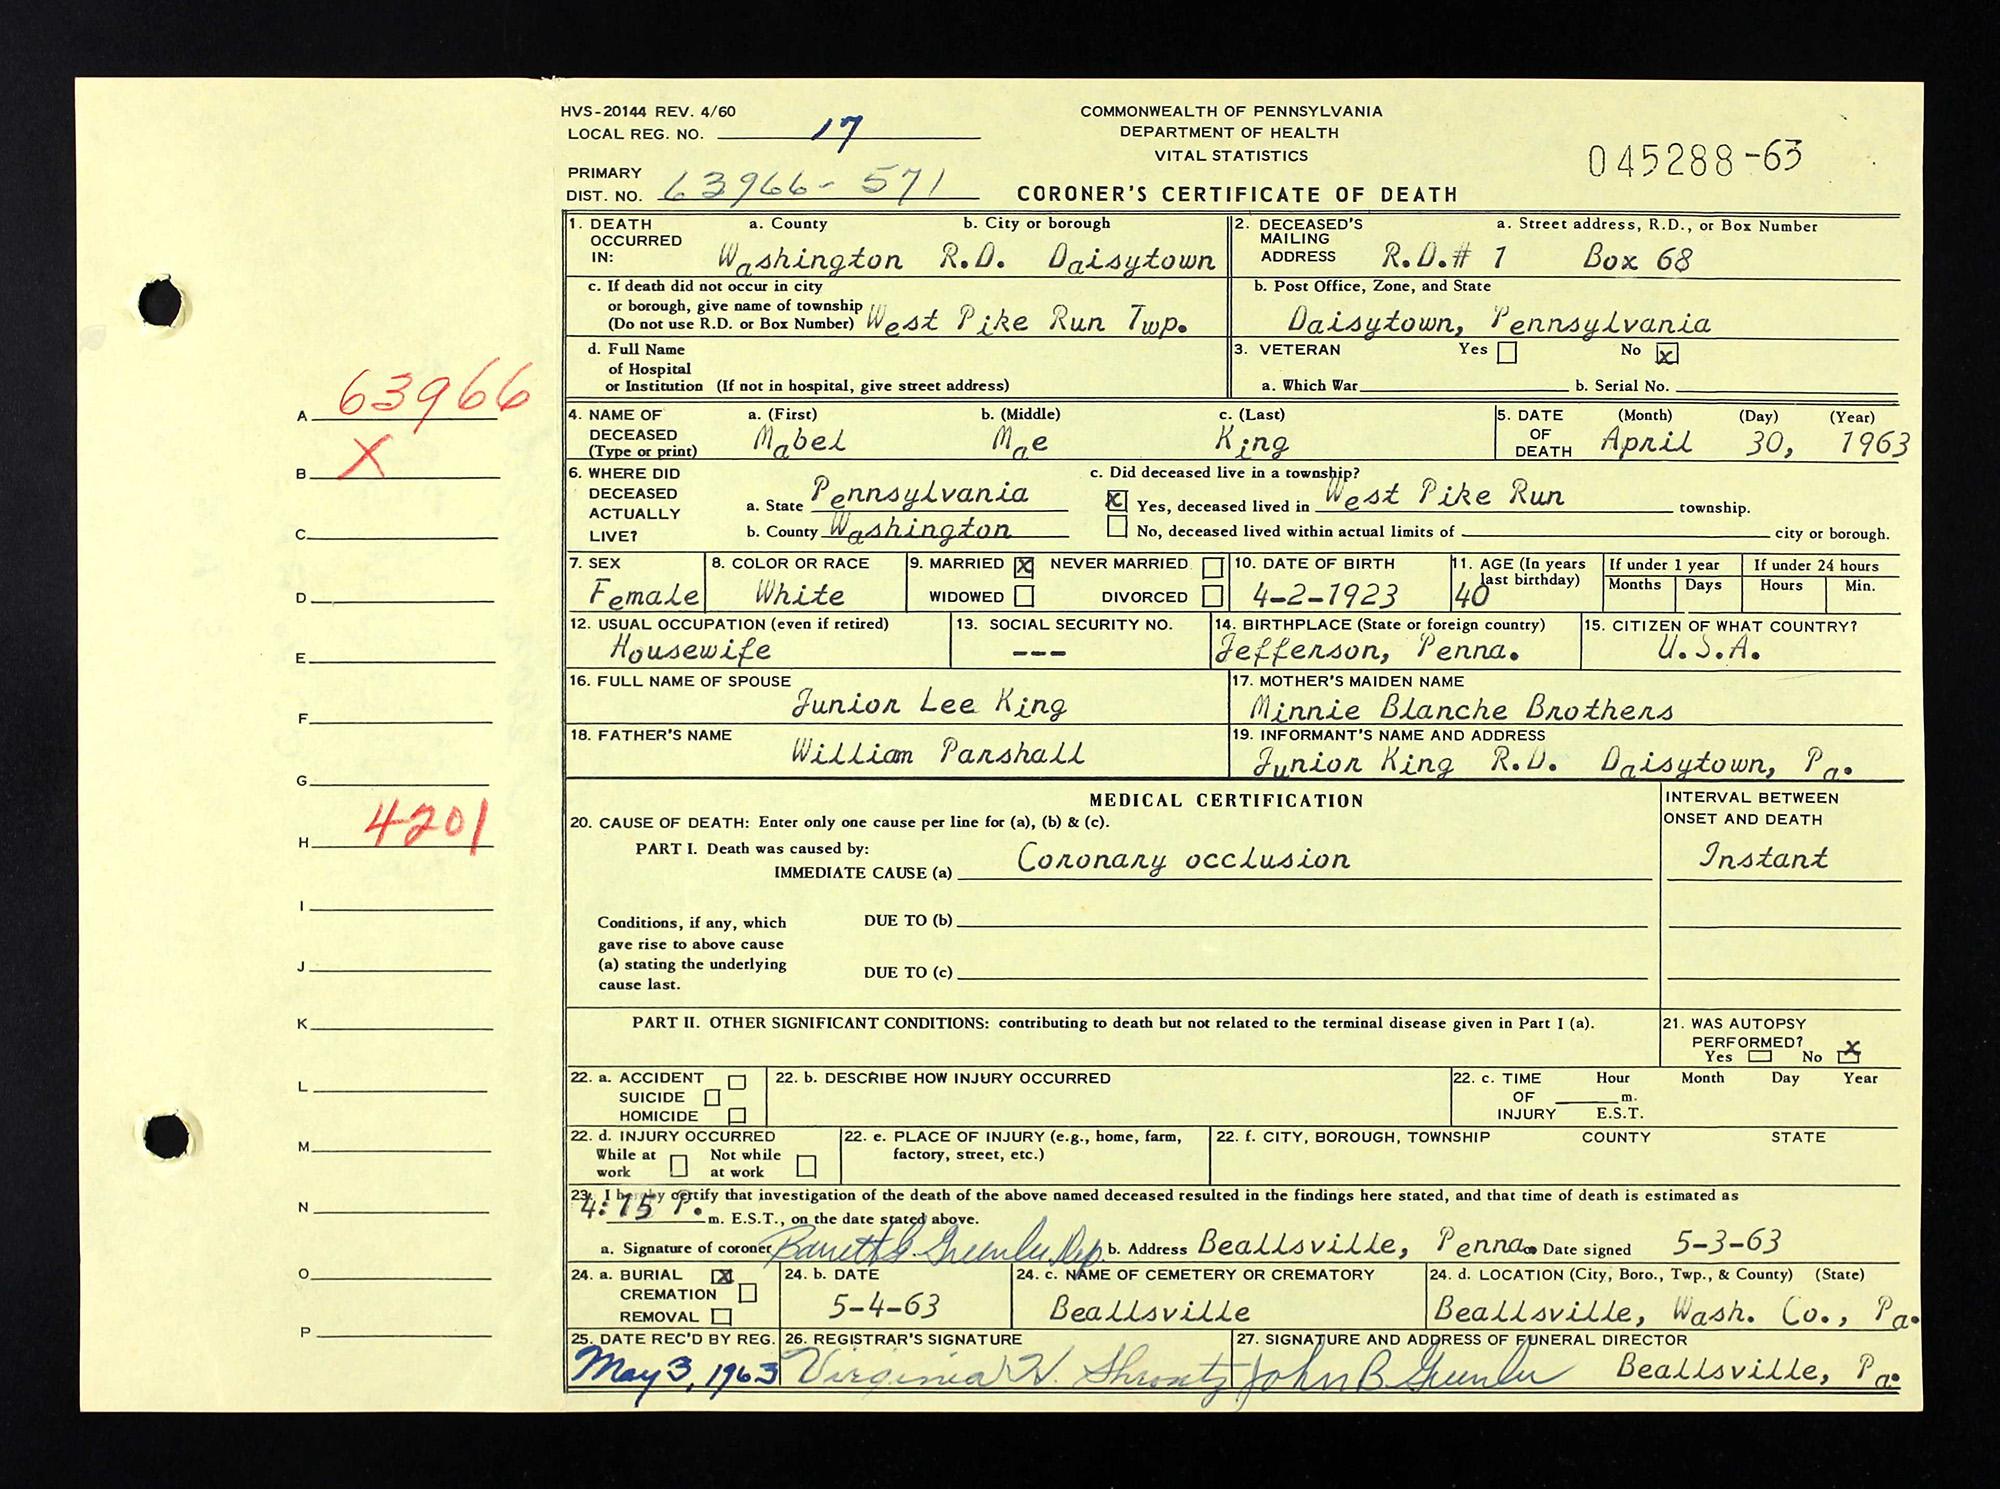 HVS-20144 REV. 4/60
LOCAL REG. NO. 17
COMMONWEALTH OF PENNSYLVANIA
DEPARTMENT OF HEALTH
VITAL STATISTICS
045288-63
PRIMARY
DIST. NO. 63966-571
CORONER'S CERTIFICATE OF DEATH
1. DEATH OCCURRED IN: a. County b. City or borough
Washington R.D. Daisytown
2. DECEASED'S MAILING ADDRESS a. Street address, R.D., or Box Number
R.D.# 1 Box 68
c. If death did not occur in city
or borough, give name of township
(Do not use R.D. or Box Number) West Pike Run Twp.
b. Post Office, Zone, and State
Daisytown, Pennsylvania
d. Full Name
of Hospital
or Institution (If not in hospital, give street address)
3. VETERAN Yes No x
a. Which War b. Serial No.
4. NAME OF DECEASED (Type or print) a. (First) b. (Middle) c. (Last)
Mabel Mae King
5. DATE OF DEATH (Month) (Day) (Year)
April 30, 1963
6. WHERE DID DECEASED ACTUALLY LIVE?
a. State Pennsylvania
b. County Washington
c. Did deceased live in a township?
x Yes, deceased lived in West Pike Run township.
No, deceased lived within actual limits of city or borough.
7. SEX
Female
8. COLOR OR RACE
White
9. MARRIED x NEVER MARRIED
WIDOWED DIVORCED
10. DATE OF BIRTH
4-2-1923
11. AGE (In years last birthday)
40
If under 1 year
Months Days
If under 24 hours
Hours Min.
12. USUAL OCCUPATION (even if retired)
Housewife
13. SOCIAL SECURITY NO.
---
14. BIRTHPLACE (State or foreign country)
Jefferson, Penna.
15. CITIZEN OF WHAT COUNTRY?
U.S.A.
16. FULL NAME OF SPOUSE
Junior Lee King
17. MOTHER'S MAIDEN NAME
Minnie Blanche Brothers
18. FATHER'S NAME
William Parshall
19. INFORMANT'S NAME AND ADDRESS
Junior King R.D. Daisytown, Pa.
MEDICAL CERTIFICATION
INTERVAL BETWEEN
ONSET AND DEATH
20. CAUSE OF DEATH: Enter only one cause per line for (a), (b) & (c).
PART I. Death was caused by:
IMMEDIATE CAUSE (a) Coronary occlusion
Instant
Conditions, if any, which
gave rise to above cause
(a) stating the underlying
cause last.
DUE TO (b)
DUE TO (c)
PART II. OTHER SIGNIFICANT CONDITIONS: contributing to death but not related to the terminal disease given in Part I (a).
21. WAS AUTOPSY
PERFORMED?
Yes No x
22. a. ACCIDENT
SUICIDE
HOMICIDE
22. b. DESCRIBE HOW INJURY OCCURRED
22. c. TIME OF INJURY Hour Month Day Year
m.
E.S.T.
22. d. INJURY OCCURRED
While at work Not while at work
22. e. PLACE OF INJURY (e.g., home, farm,
factory, street, etc.)
22. f. CITY, BOROUGH, TOWNSHIP COUNTY STATE
23. I hereby certify that investigation of the death of the above named deceased resulted in the findings here stated, and that time of death is estimated as
4:15 P. m. E.S.T., on the date stated above.
a. Signature of coroner Barrett G. Greenlee Dep. b. Address Beallsville, Penna. Date signed 5-3-63
24. a. BURIAL x
CREMATION
REMOVAL
24. b. DATE
5-4-63
24. c. NAME OF CEMETERY OR CREMATORY
Beallsville
24. d. LOCATION (City, Boro., Twp., & County) (State)
Beallsville, Wash. Co., Pa.
25. DATE REC'D BY REG.
May 3, 1963
26. REGISTRAR'S SIGNATURE
Virginia H. Shrontz
27. SIGNATURE AND ADDRESS OF FUNERAL DIRECTOR
John B Greenlee Beallsville, Pa.
A 63966
B X
C
D
E
F
G
H 4201
I
J
K
L
M
N
O
P